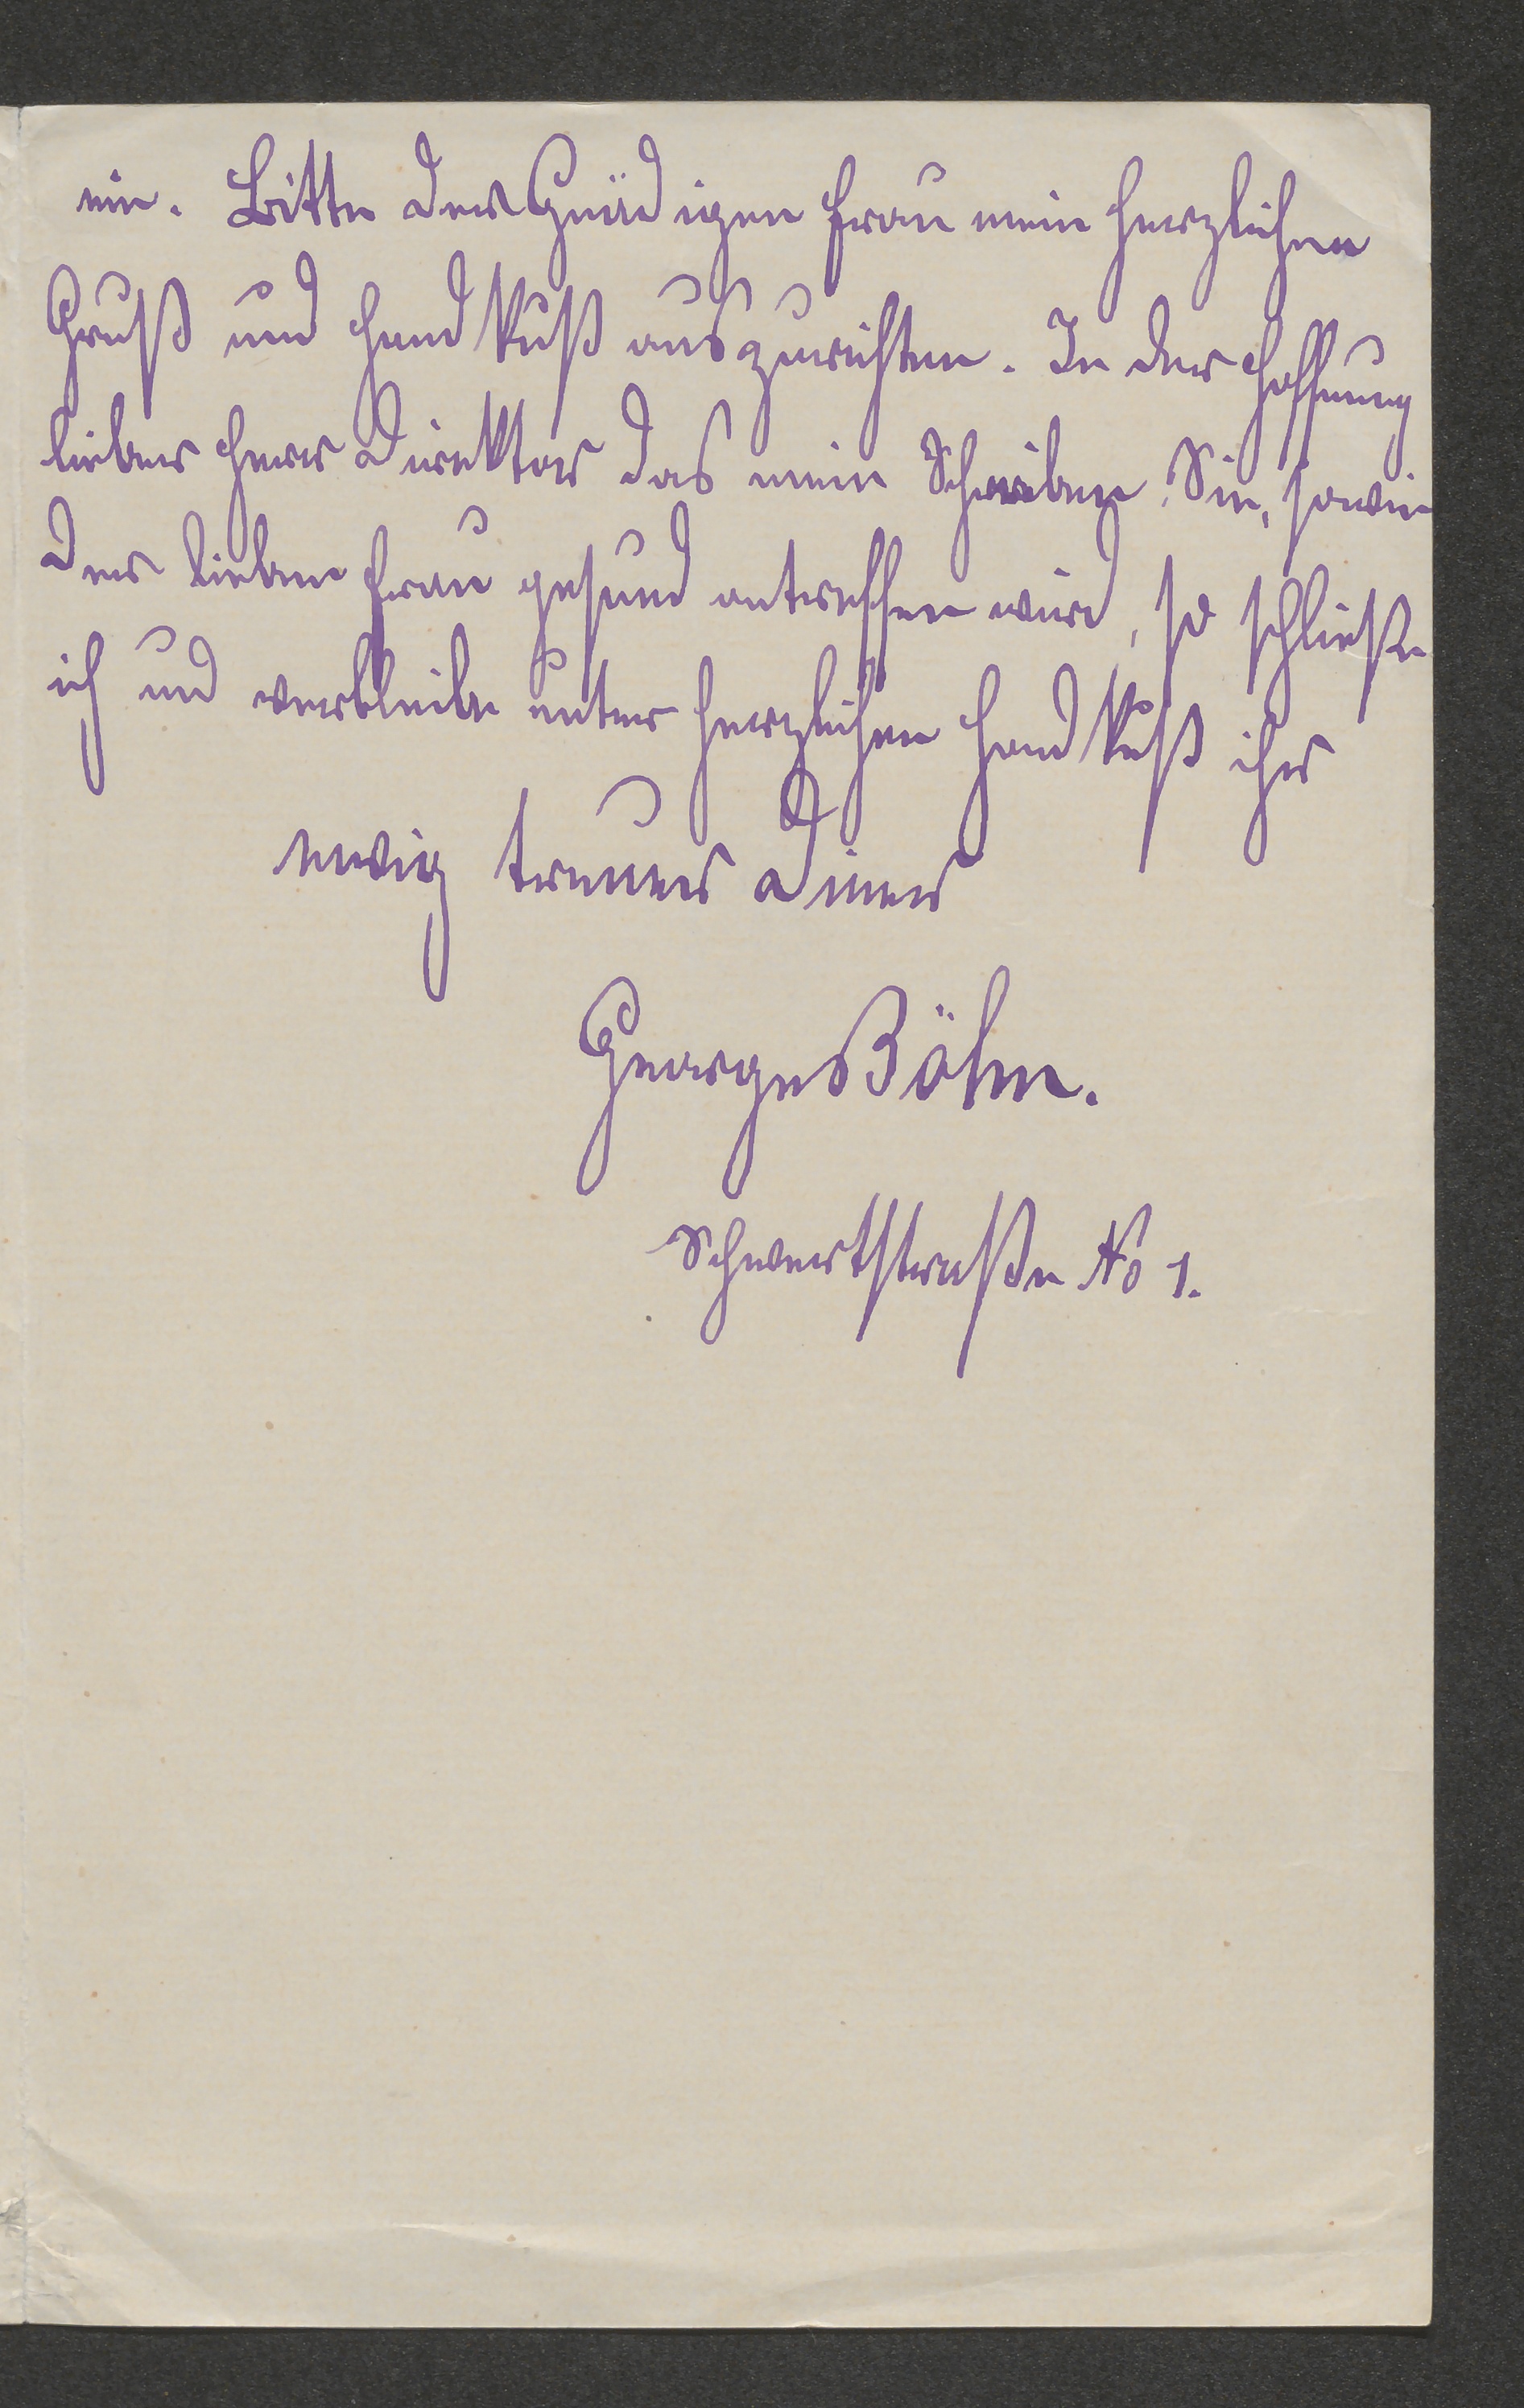 ein. Bitte der Gnädigen Frau mein herzlichen
Gruß und Handkuß auszurichten. In der Hoffnung
lieber Herr Direktor das mein Schreiben Sie, sowie
der lieben Frau gesund antreffen wird, so schließe
ich und verbleibe unter herzlichen Handkuß ihr
ewig treuer Diner
George Böhm.
Schwertstraße No 1.